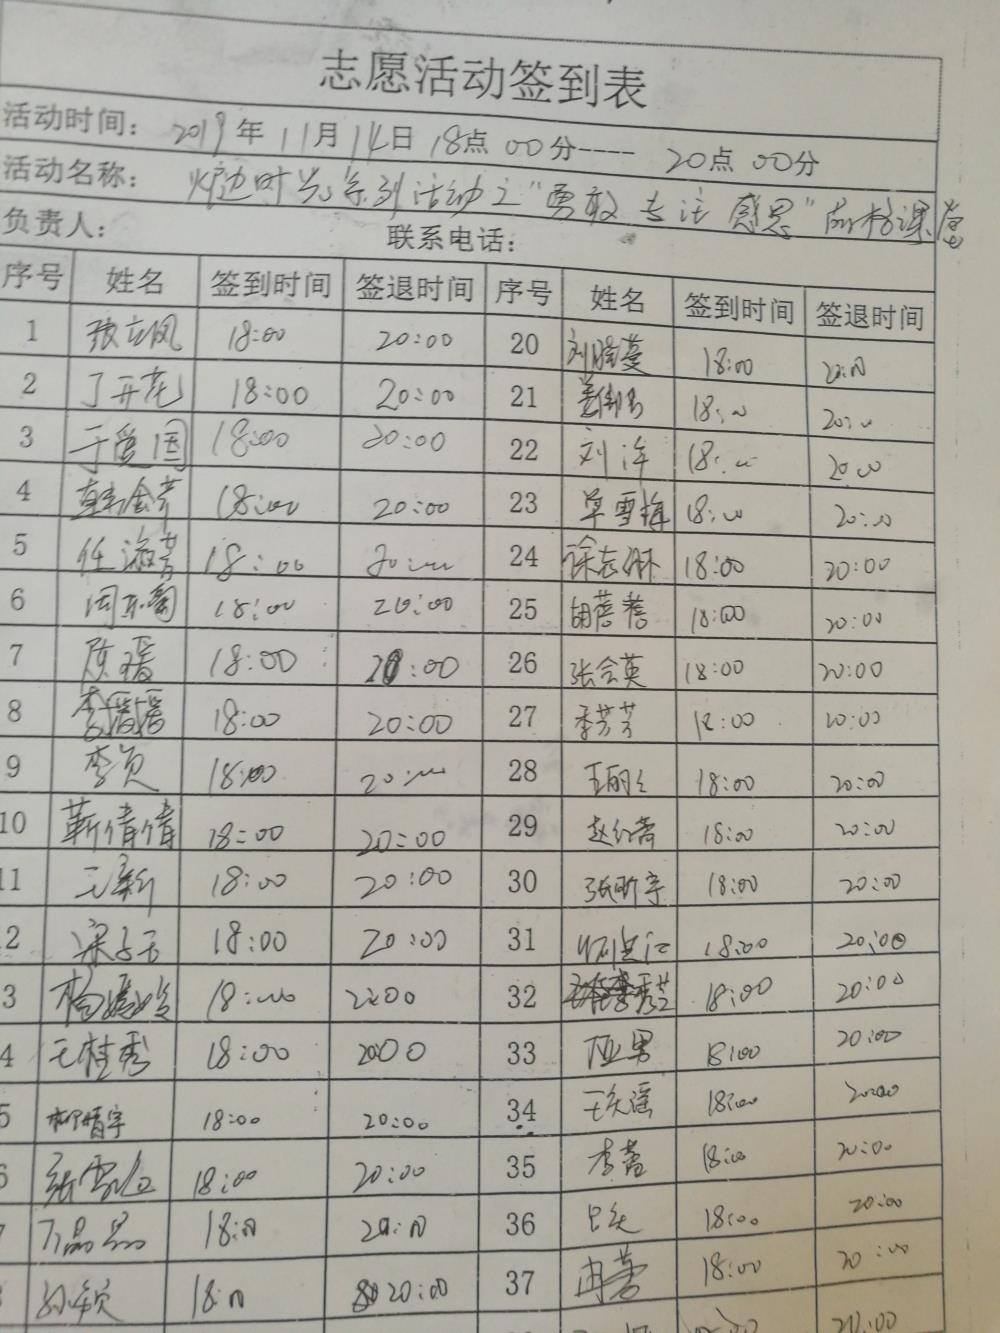 志愿活动签到表
活动时间: 2019年 11月 14日 18点 00分---- 20点 00分
活动名称: 炉边时光系列活动之"勇敢 专注 感恩"品格课堂
负责人: 联系电话:
序号 姓名 签到时间 签退时间 序号 姓名 签到时间 签退时间
1 张立凤 18:00 20:00 20 刘晓蔓 18:00 20:00
2 丁开花 18:00 20:00 21 18:00 20:00
3 于爱国 18:00 20:00 22 刘洋 18:00 20:00
4 韩金芳 18:00 20:00 23 单雪梅 18:00 20:00
5 任淑芳 18:00 20:00 24 徐志琳 18:00 20:00
6 周东菊 18:00 20:00 25 胡蓓蓓 18:00 20:00
7 陈瑶 18:00 20:00 26 张会英 18:00 20:00
8 李瑶瑶 18:00 20:00 27 季芳芳 18:00 20:00
9 李贞 18:00 20:00 28 王丽 18:00 20:00
10 靳倩倩 18:00 20:00 29 赵红霄 18:00 20:00
11 王新 18:00 20:00 30 张昕宇 18:00 20:00
2 梁子玉 18:00 20:00 31 18:00 20:00
3 杨 18:00 20:00 32 李秀芝 18:00 20:00
4 王桂秀 18:00 20:00 33 男 18:00 20:00
5 柳晴宇 18:00 20:00 34 王瑶 18:00 20:00
6 张雪 18:00 20:00 35 李蕾 18:00 20:00
7 晶晶 18:00 20:00 36 18:00 20:00
孙颖 18:00 20:00 37 冉蕾 18:00 20:00
20:00